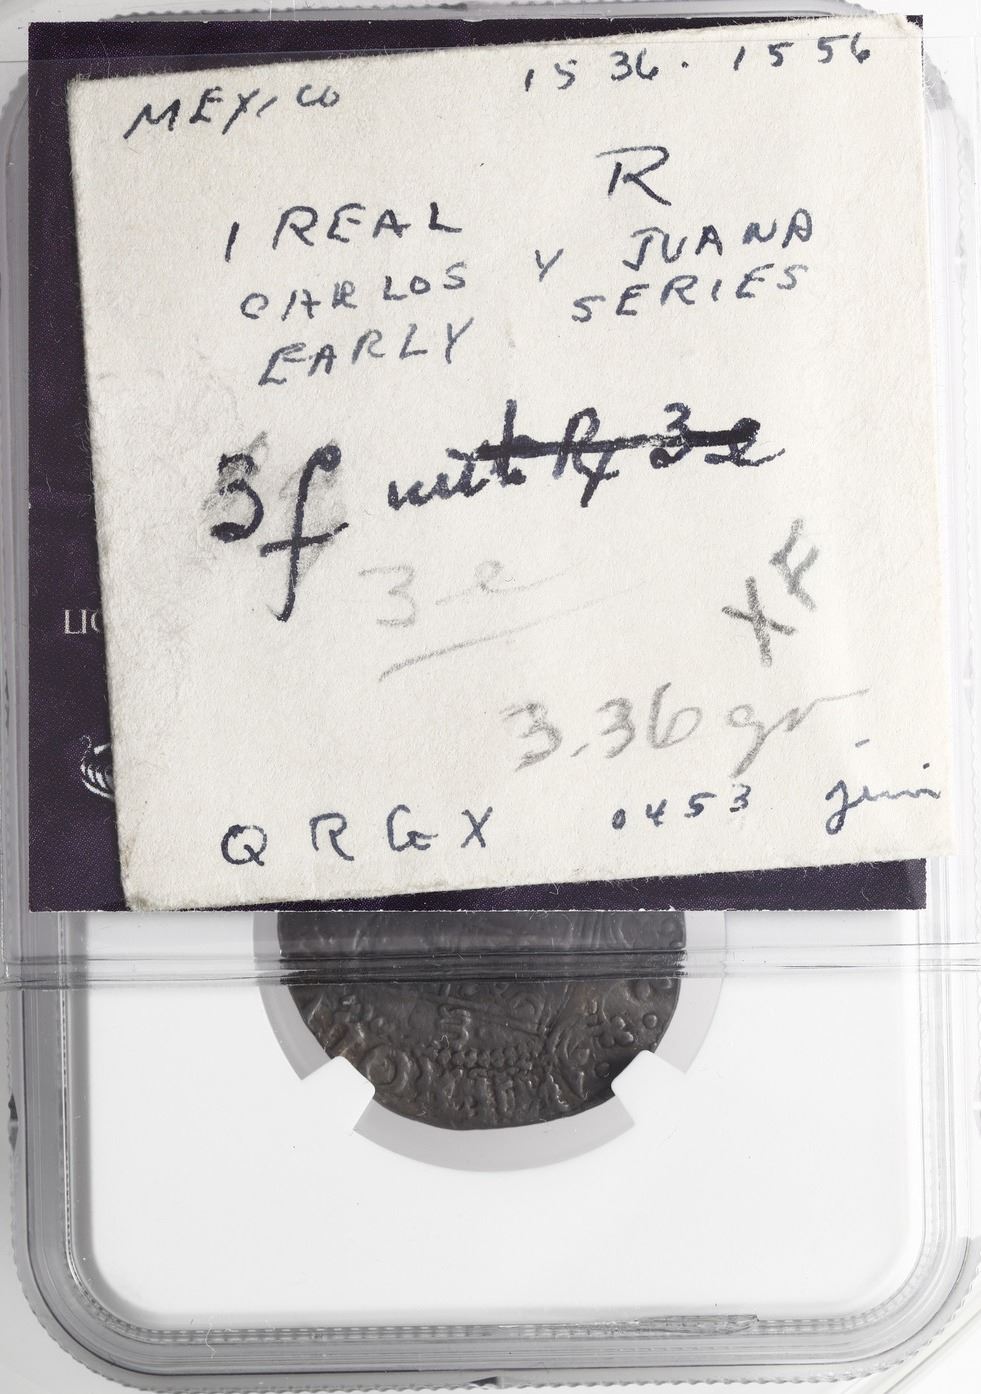 MEXICO 1536-1556
R
1 REAL
CARLOS Y JUANA
EARLY SERIES
3f with Rx 3e
3e
XF
3.36 gr
QRGX 0453
LIO